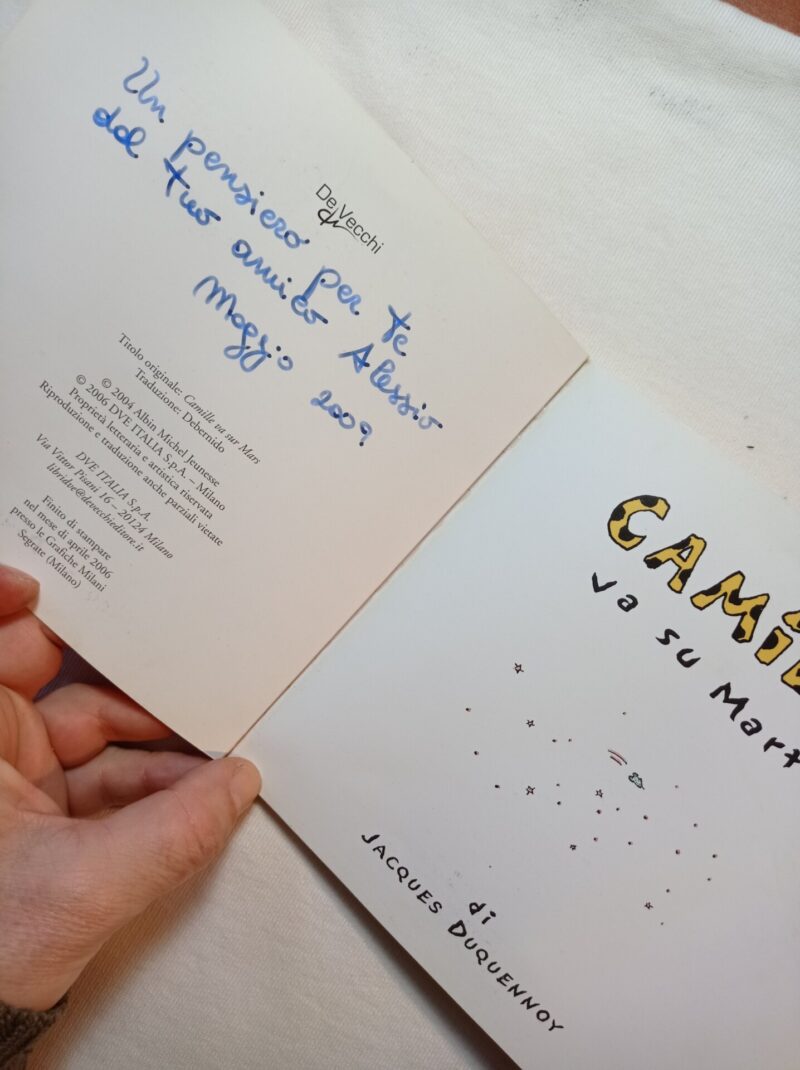 Un pensiero per te
dal tuo amico Alessio
Maggio 2009
De Vecchi
Titolo originale: Camille va sur Mars
Traduzione: Debernido
© 2004 Albin Michel Jeunesse
© 2006 DVE ITALIA S.p.A. – Milano
Proprietà letteraria e artistica riservata
Riproduzione e traduzione anche parziali vietate
DVE ITALIA S.p.A.
Via Vittor Pisani 16 – 20124 Milano
libridve@devecchieditore.it
Finito di stampare
nel mese di aprile 2006
presso le Grafiche Milani
Segrate (Milano)
CAMIL
va su Mart
di
JACQUES DUQUENNOY